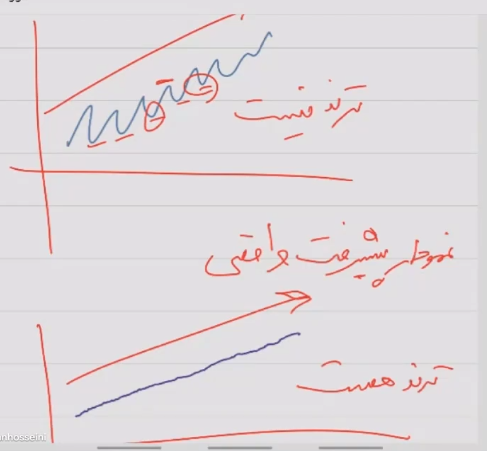 ترند نیست
نمودار پیشرفت واقعی
ترند هست
nhosseini